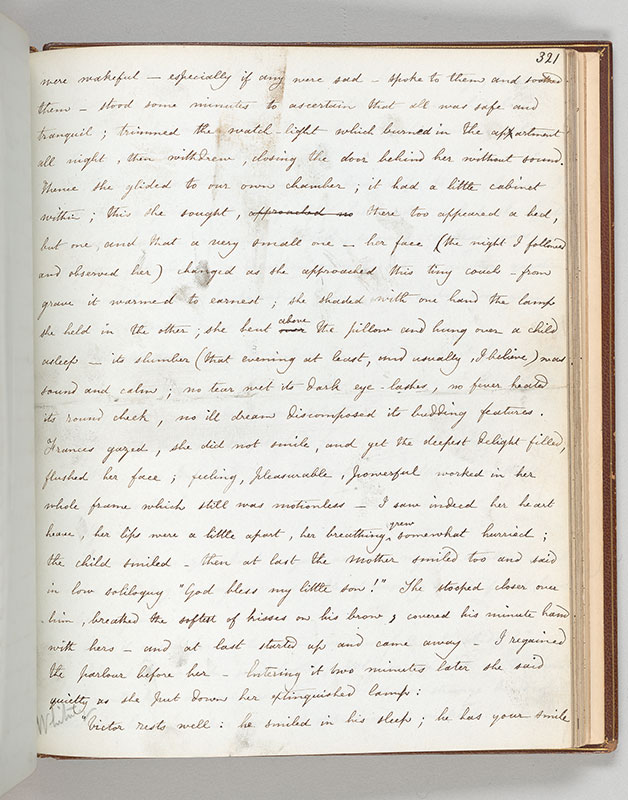 321
were wakeful — especially if any were sad — spoke to them and soothed
them — stood some minutes to ascertain that all was safe and
tranquil ; trimmed the watch-light which burned in the apartment
all night, then withdrew, closing the door behind her without sound.
Thence she glided to our own chamber ; it had a little cabinet
within ; this she sought, approached no there too appeared a bed,
but one, and that a very small one — her face (the night I followed
and observed her) changed as she approached this tiny couch — from
grave it warmed to earnest ; she shaded with one hand the lamp
she held in the other ; she bent over above the pillow and hung over a child
asleep — its slumber (that evening at least, and usually, I believe,) was
sound and calm ; no tear wet its dark eye-lashes, no fever heated
its round cheek, no ill dream discomposed its budding features.
Frances gazed, she did not smile, and yet the deepest delight filled,
flushed her face ; feeling, pleasurable, powerful worked in her
whole frame which still was motionless — I saw indeed her heart
heave, her lips were a little apart, her breathing grew somewhat hurried ;
the child smiled — then at last the mother smiled too and said
in low soliloquy "God bless my little son!" She stooped closer over
him, breathed the softest of kisses on his brow, covered his minute hand
with hers — and at last started up and came away — I regained
the parlour before her — Entering it two minutes later she said
quietly as she put down her extinguished lamp :
"Victor rests well : he smiled in his sleep ; he has your smile